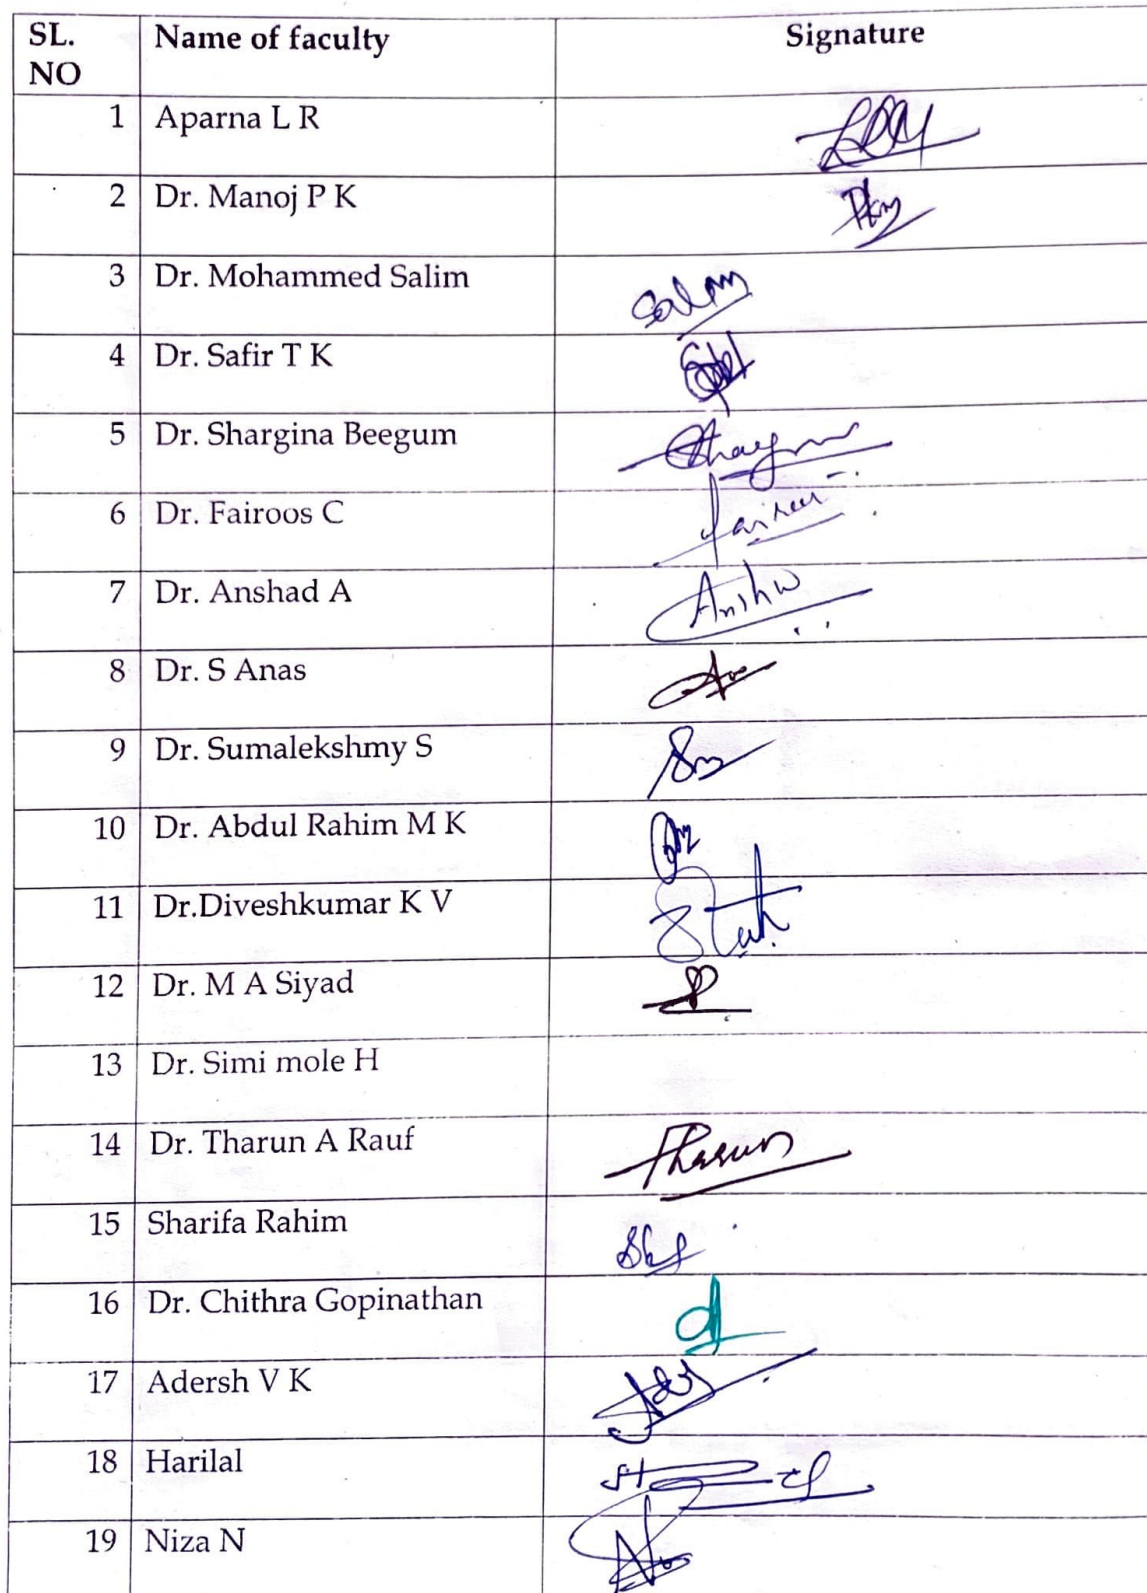 SL. NO Name of faculty Signature
1 Aparna L R
2 Dr. Manoj P K
3 Dr. Mohammed Salim Salim
4 Dr. Safir T K
5 Dr. Shargina Beegum
6 Dr. Fairoos C
7 Dr. Anshad A
8 Dr. S Anas
9 Dr. Sumalekshmy S
10 Dr. Abdul Rahim M K
11 Dr.Diveshkumar K V
12 Dr. M A Siyad
13 Dr. Simi mole H
14 Dr. Tharun A Rauf Tharun
15 Sharifa Rahim
16 Dr. Chithra Gopinathan
17 Adersh V K
18 Harilal
19 Niza N